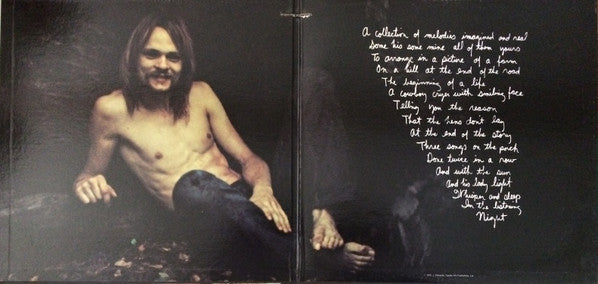 A collection of melodies imagined and real
Some his some mine all of them yours
To arrange in a picture of a farm
On a hill at the end of the road
The beginning of a life
A cowboy cryer with smiling face
Telling you the reason
That the hens don't lay
At the end of the story
Three songs on the porch
Done twice in a row
And with the sun
and his lady light
Whisper and sleep
In the listening
Night